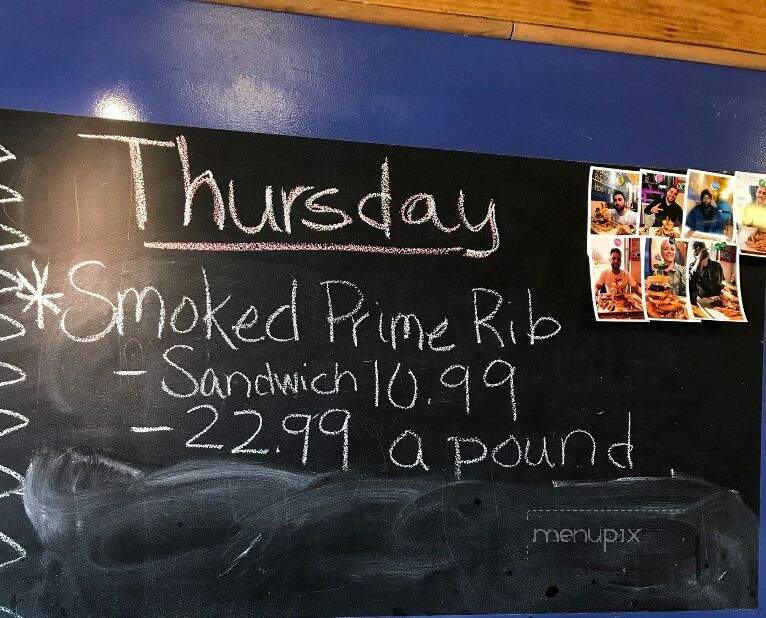 Thursday
*Smoked Prime Rib
- Sandwich 10.99
- 22.99 a pound
menupix